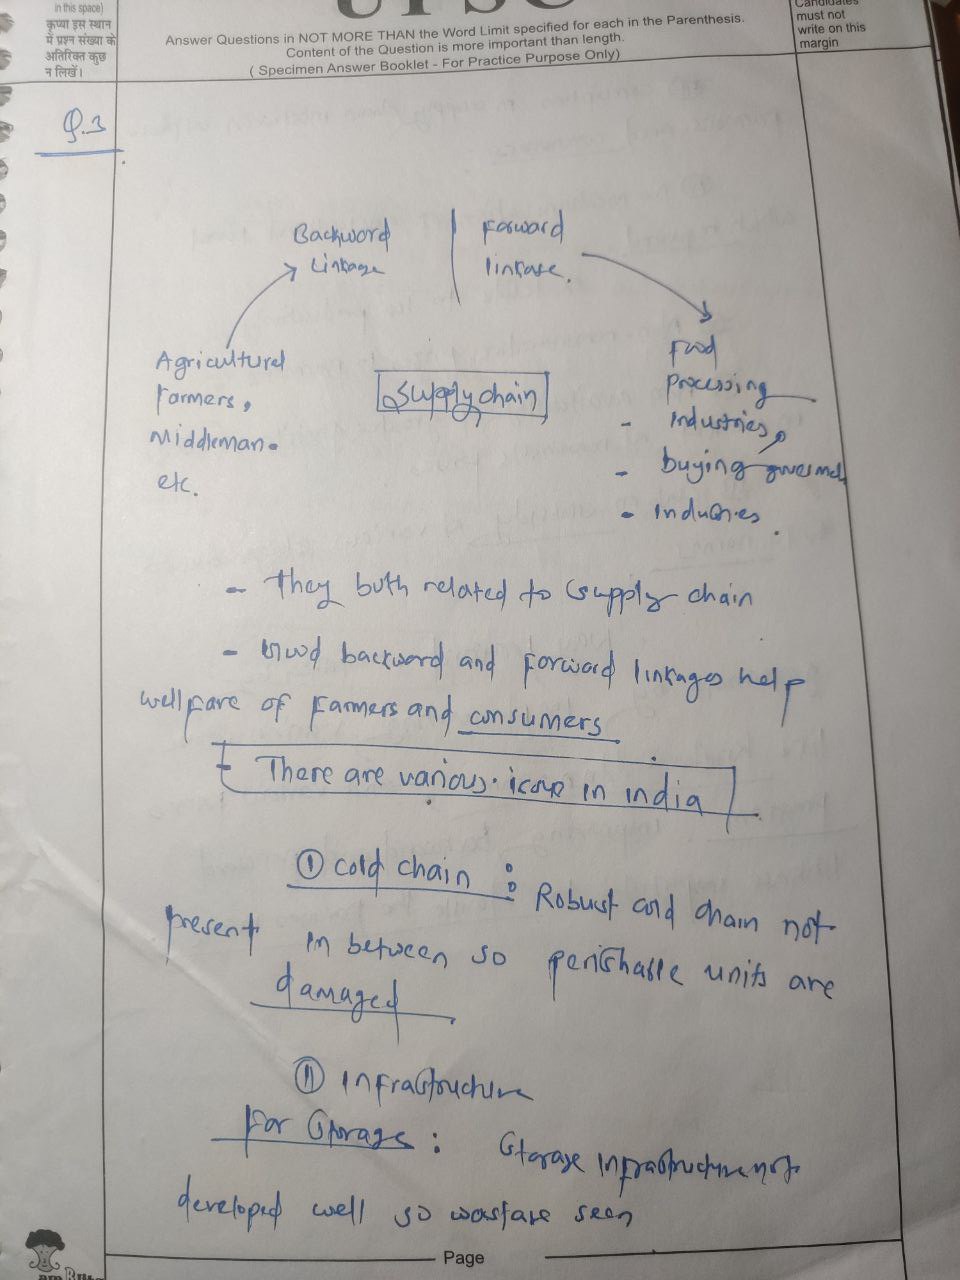 in this space)
कृप्या इस स्थान
में प्रश्न संख्या के
अतिरिक्त कुछ
न लिखें।
Answer Questions in NOT MORE THAN the Word Limit specified for each in the Parenthesis.
Content of the Question is more important than length.
( Specimen Answer Booklet - For Practice Purpose Only)
Candidates
must not
write on this
margin
Q.3
Backword
Linkage
Forward
linkase.
Agricultural
Farmers,
Middleman.
etc.
Supply chain
Food
Processing
- Industries,
- buying
- Industries.
- They both related to supply chain
- Good backward and forward linkages help
wellfare of farmers and consumers
- There are various in india
① cold chain : Robust cold chain not
present in between so perishable units are
damaged
⑪ Infrastructure
For Storage : Storage infrastructure not
developed well so wastare seen
Page